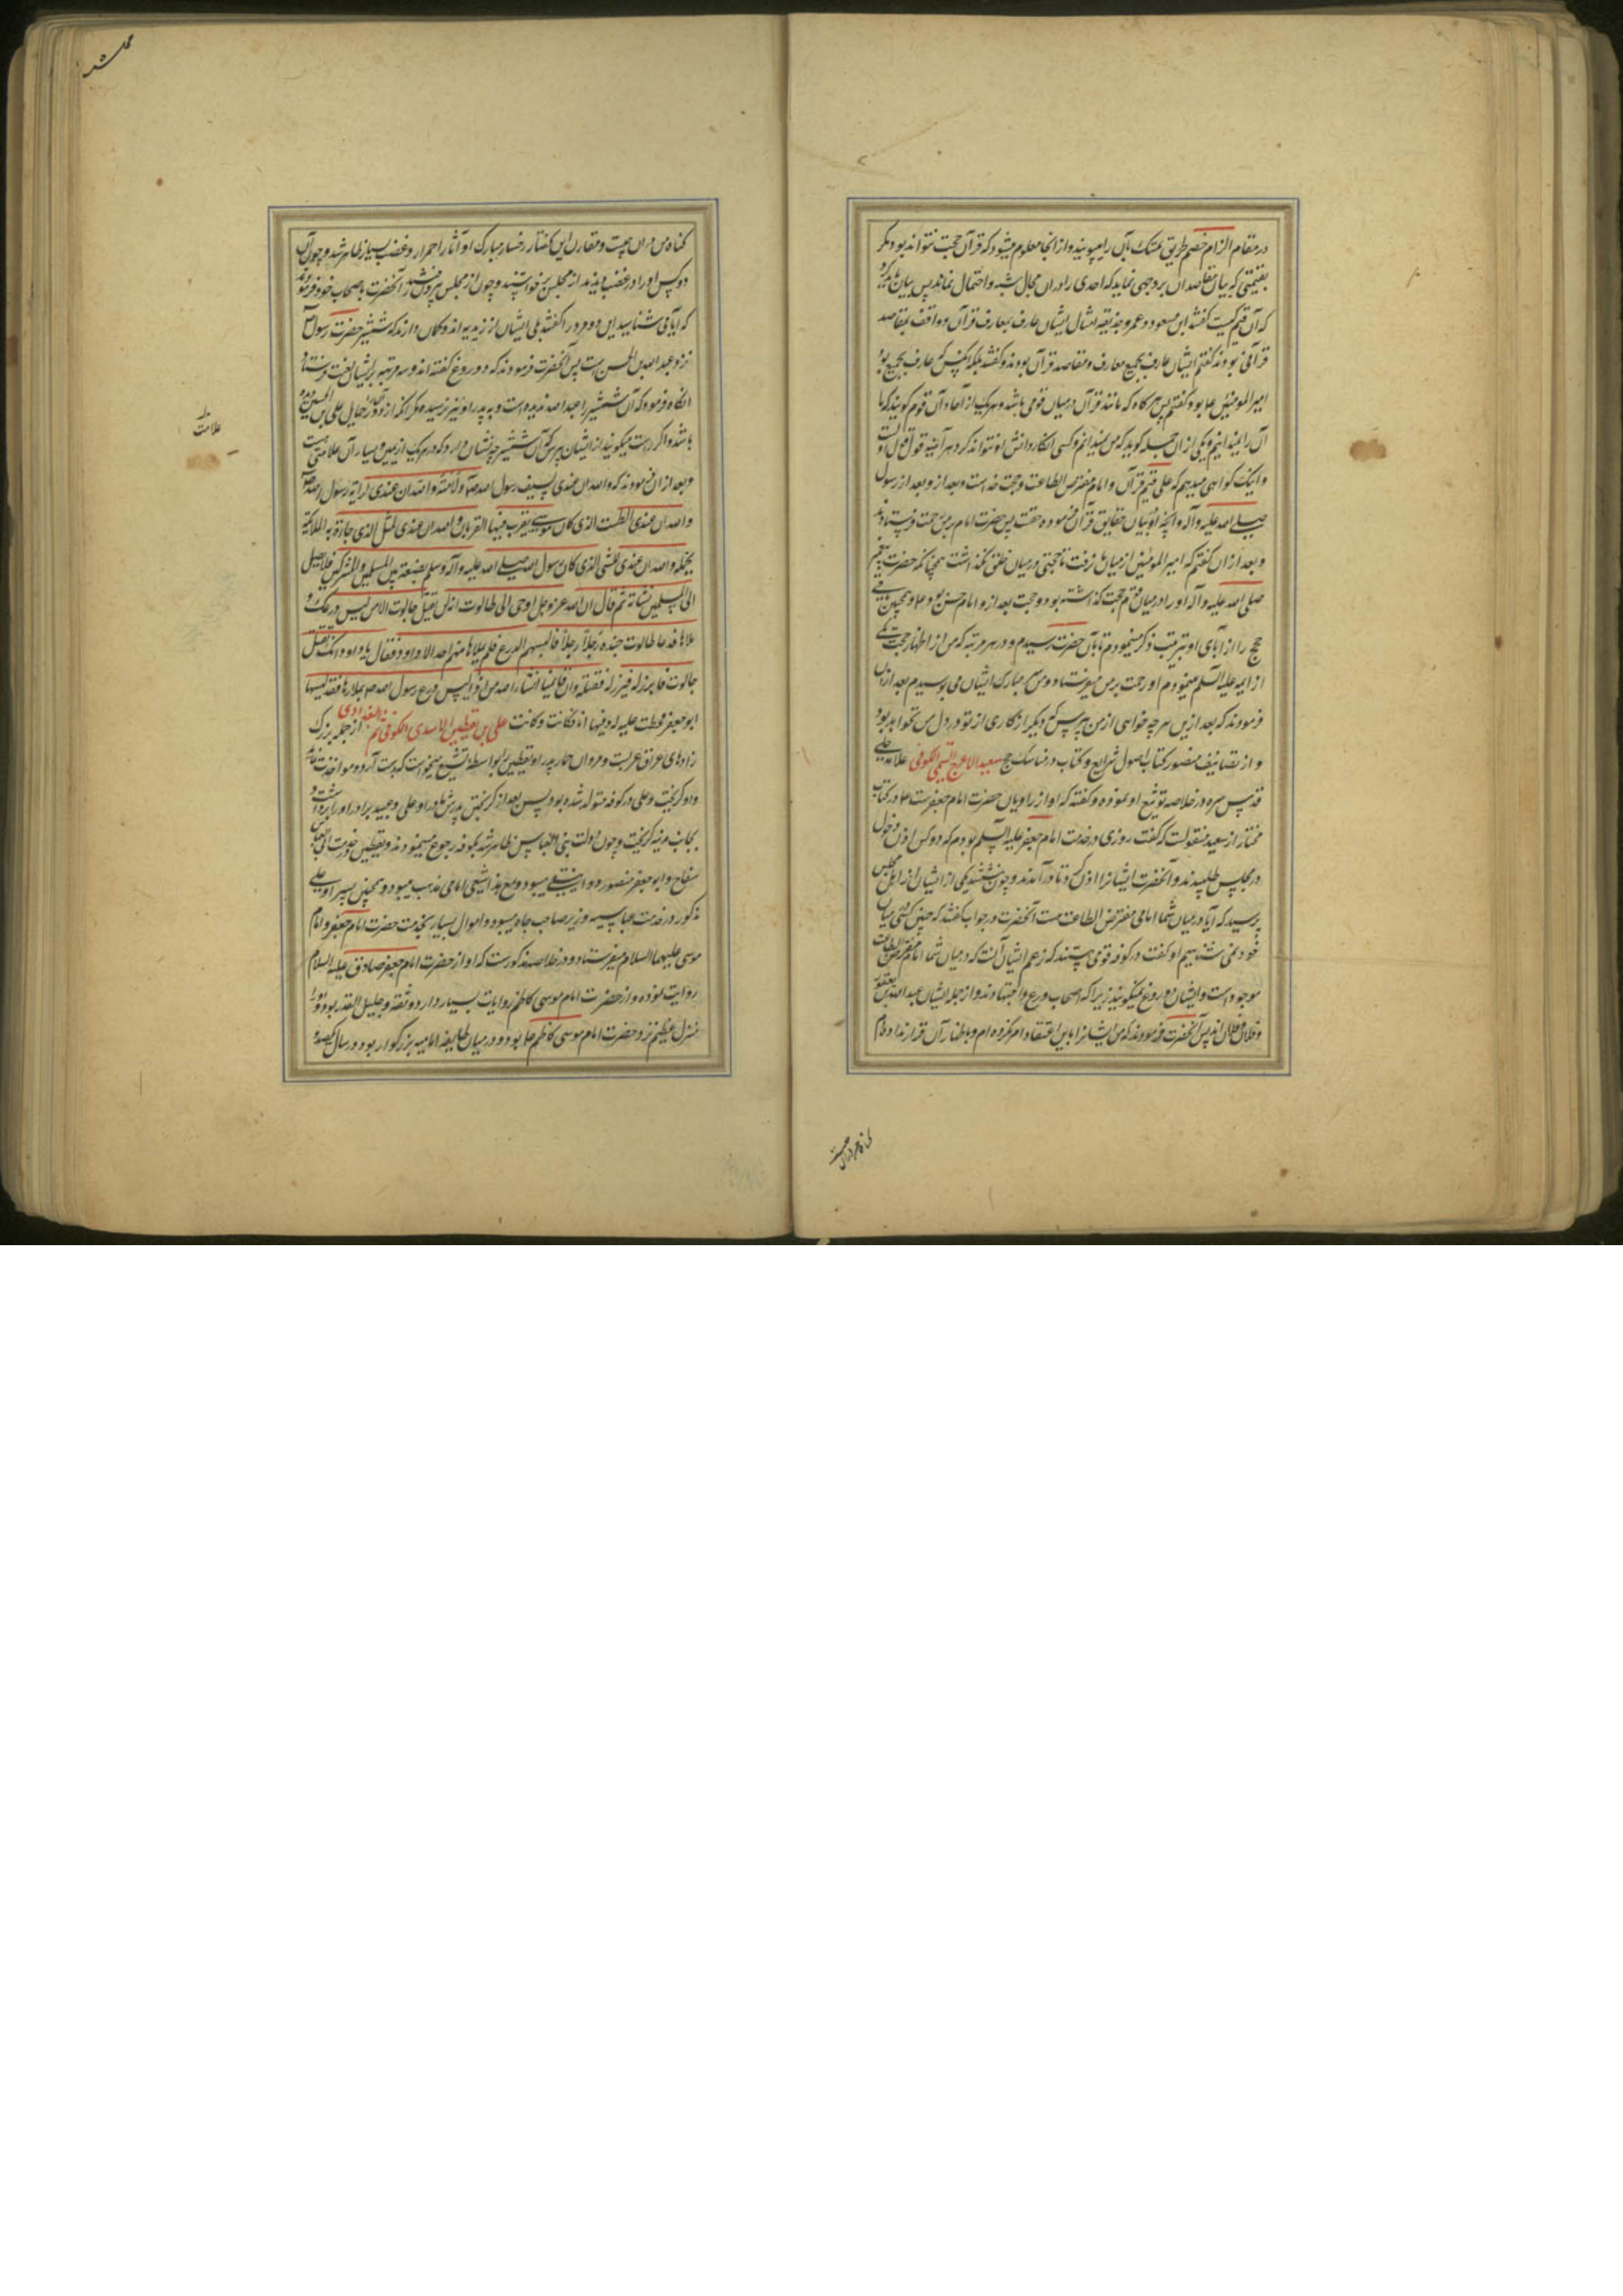 در مقام الزام خصم طریق تمسک بآن را میپویند و از اینجا معلوم میشود که قرآن حجت نتواند بود مگر
بقیمی که بیان مقاصد آن بر وجهی نماید که احدی را در آن مجال شبه و احتمال نماند پس بیان باید کرد
که آن قیم کیست گفتند ابن مسعود و عمر و حذیفه امثال ایشان عارف بمعارف قرآن و واقف بمقاصد
قرآنی بودند گفتم ایشان عارف بجمیع معارف و مقاصد قرآن بودند گفتند بلکه آنکس که عارف بجمیع بود
امیر المومنین ع بود گفتم پس هرگاه که مانند قرآن در میان قومی باشد و هر یک از آحاد آن قوم گویند که ما
آن را نمیدانیم و یکی از آن جمله گوید که من میدانم و کسی انکار دانش او نتواند کرد هر آینه قول قول اوست
و اینک گواهی میدهم که علی قیم قرآن و امام مفترض الطاعت و حجت خداست و بعد از رسول
صلی الله علیه و آله و آنچه او به بیان حقایق قرآن فرموده حقست پس حضرت امام بر من رحمت فرستادند
و بعد از آن گفتم که امیر المومنین از میان نرفت تا حجتی در میان خلق نگذاشت همچنانکه حضرت پیغمبر
صلی الله علیه و آله او را در میان قوم حجت گذاشته بود و حجت بعد از و امام حسن بود ع و همچنین
حجج را از آبای او بترتیب ذکر مینمودم تا بآن حضرت رسیدم و در هر مرتبه که من از اظهار حجت یکی
از ایمه علیه السلم مینمودم او رحمت بر من میفرستاد و من سر مبارک ایشان می بوسیدم بعد از آن
فرمودند که بعد ازین هر چه خواهی از من بپرس که دیگر انکاری از تو در دل من نخواهد بود
و از تصانیف منصور کتاب اصول شرایع و کتاب در مناسک حج سعید الاعرج التیمی الکوفی علامه حلی
قدس سره در خلاصه توثیق او نموده و گفته که او از راویان حضرت امام جعفرست ع و در کتاب
مختار از سعید منقولست که گفت روزی در خدمت امام جعفر علیه السلم بودم که دو کس اذن دخول
در مجلس طلبیدند و آنحضرت ایشانرا اذن کرد تا در آمدند و چون نشستند یکی از ایشان از اهل مجلس
پرسید که آیا در میان شما امامی مفترض الطاعت هست آنحضرت در جواب گفتند که چنین کسی میان
خود نمی شناسیم او گفت در کوفه قومی هستند که زعم ایشان آنست که در میان شما امام مفترض الطاعت
موجود است و ایشان دروغ نمیگویند زیرا که اصحاب ورع و اجتهادند و از جمله ایشان عبد الله بن یعفور
و فلان و فلان اند پس آنحضرت فرمودند که من ایشانرا باین اعتقاد امر نکرده ام و باظهار آن قرار نداده ام
گناه من در آن چیست و مقارن این گفتار رخسار مبارک او آثار احمرار و غضب بسیار ظاهر شد و چون آن
دو کس او را در غضب دیدند از مجلس برخواستند و چون از مجلس بیرون شدند آنحضرت باصحاب خود فرمودند
که آیا می شناسید این دو مرد را گفتند بلی ایشان از زیدیه اند و گمان دارند که شمشیر حضرت رسول ص
نزد عبد الله بن الحسن است پس آنحضرت فرمودند که دروغ گفته اند و سه مرتبه بر ایشان لعنت فرستاد
آنگاه فرمود که آن شمشیر را عبد الله ندیده است و به پدر او نیز نرسیده مگر آنکه از دور در حمایل علی بن الحسین دیده
باشد و اگر راست میگویند از ایشان پرس که آن شمشیر چه نشان دارد که در هر یک از یمین و یسار آن علامتی هست
و بعد از آن فرمودند که و الله ان عندی لسیف رسول الله ص و لامته و الله ان عندی لرایة رسول الله ص
و الله ان عندی الطست الذی کان موسی یقرب فیها القربان و الله ان عندی لمثل الذی جاءت به الملائکة
تحمله و الله ان عندی للشی الذی کان رسول الله صلی الله علیه و آله و سلم یضعه بین المسلمین و المشرکین فلا یصل
الی المسلمین نشابة ثم قال ان الله عز و جل اوحی الی طالوت انه لن یقتل جالوت الا من لبس درعک و
ملاها فدعا طالوت جنده رجلا رجلا فالبسهم الدرع فلم یملاها منهم احد الا داود فقال یا داود انک تقتل
جالوت فابرز له فبرز له فقتله و ان قائمنا انشاء الله من اذا لبس درع رسول الله ص یملاها و قد لبسها
ابو جعفر فخطت علیه و لبستها انا فکانت و کانت علی بن یقطین الاسدی الکوفی ثم البغدادی از جمله بزرگ
زادهای عراق عربست و مروان حمار پدر او یقطین را بواسطه تشیع میخواست که بدست آرد و مواخذت نماید
و او گریخت و علی در کوفه متولد شده بود پس بعد از گریختن پدرش مادر او علی و عبید برادر او را برداشت و
بجانب مدینه گریخت و چون دولت بنی العباس ظاهر شد بکوفه رجوع مینمودند و یقطین خدمت ابی العباس
سفاح و ابو جعفر منصور دوانیقی میبود و مع هذا شیعی امامی مذهب میبود و همچنین پسر او علی
مذکور در خدمت عباسیه وزیر صاحب جاه میبود و اموال بسیار بخدمت حضرت امام جعفر و امام
موسی علیهما السلام میفرستاد و در خلاصه مذکورست که او از حضرت امام جعفر صادق علیه السلام
روایت نموده و از حضرت امام موسی کاظم روایات بسیار دارد و ثقه و جلیل القدر بود و او را
منزل عظیم نزد حضرت امام موسی کاظم ع بود و در میان طایفه امامیه بزرگوار بود و در سال یکصد و
علامت